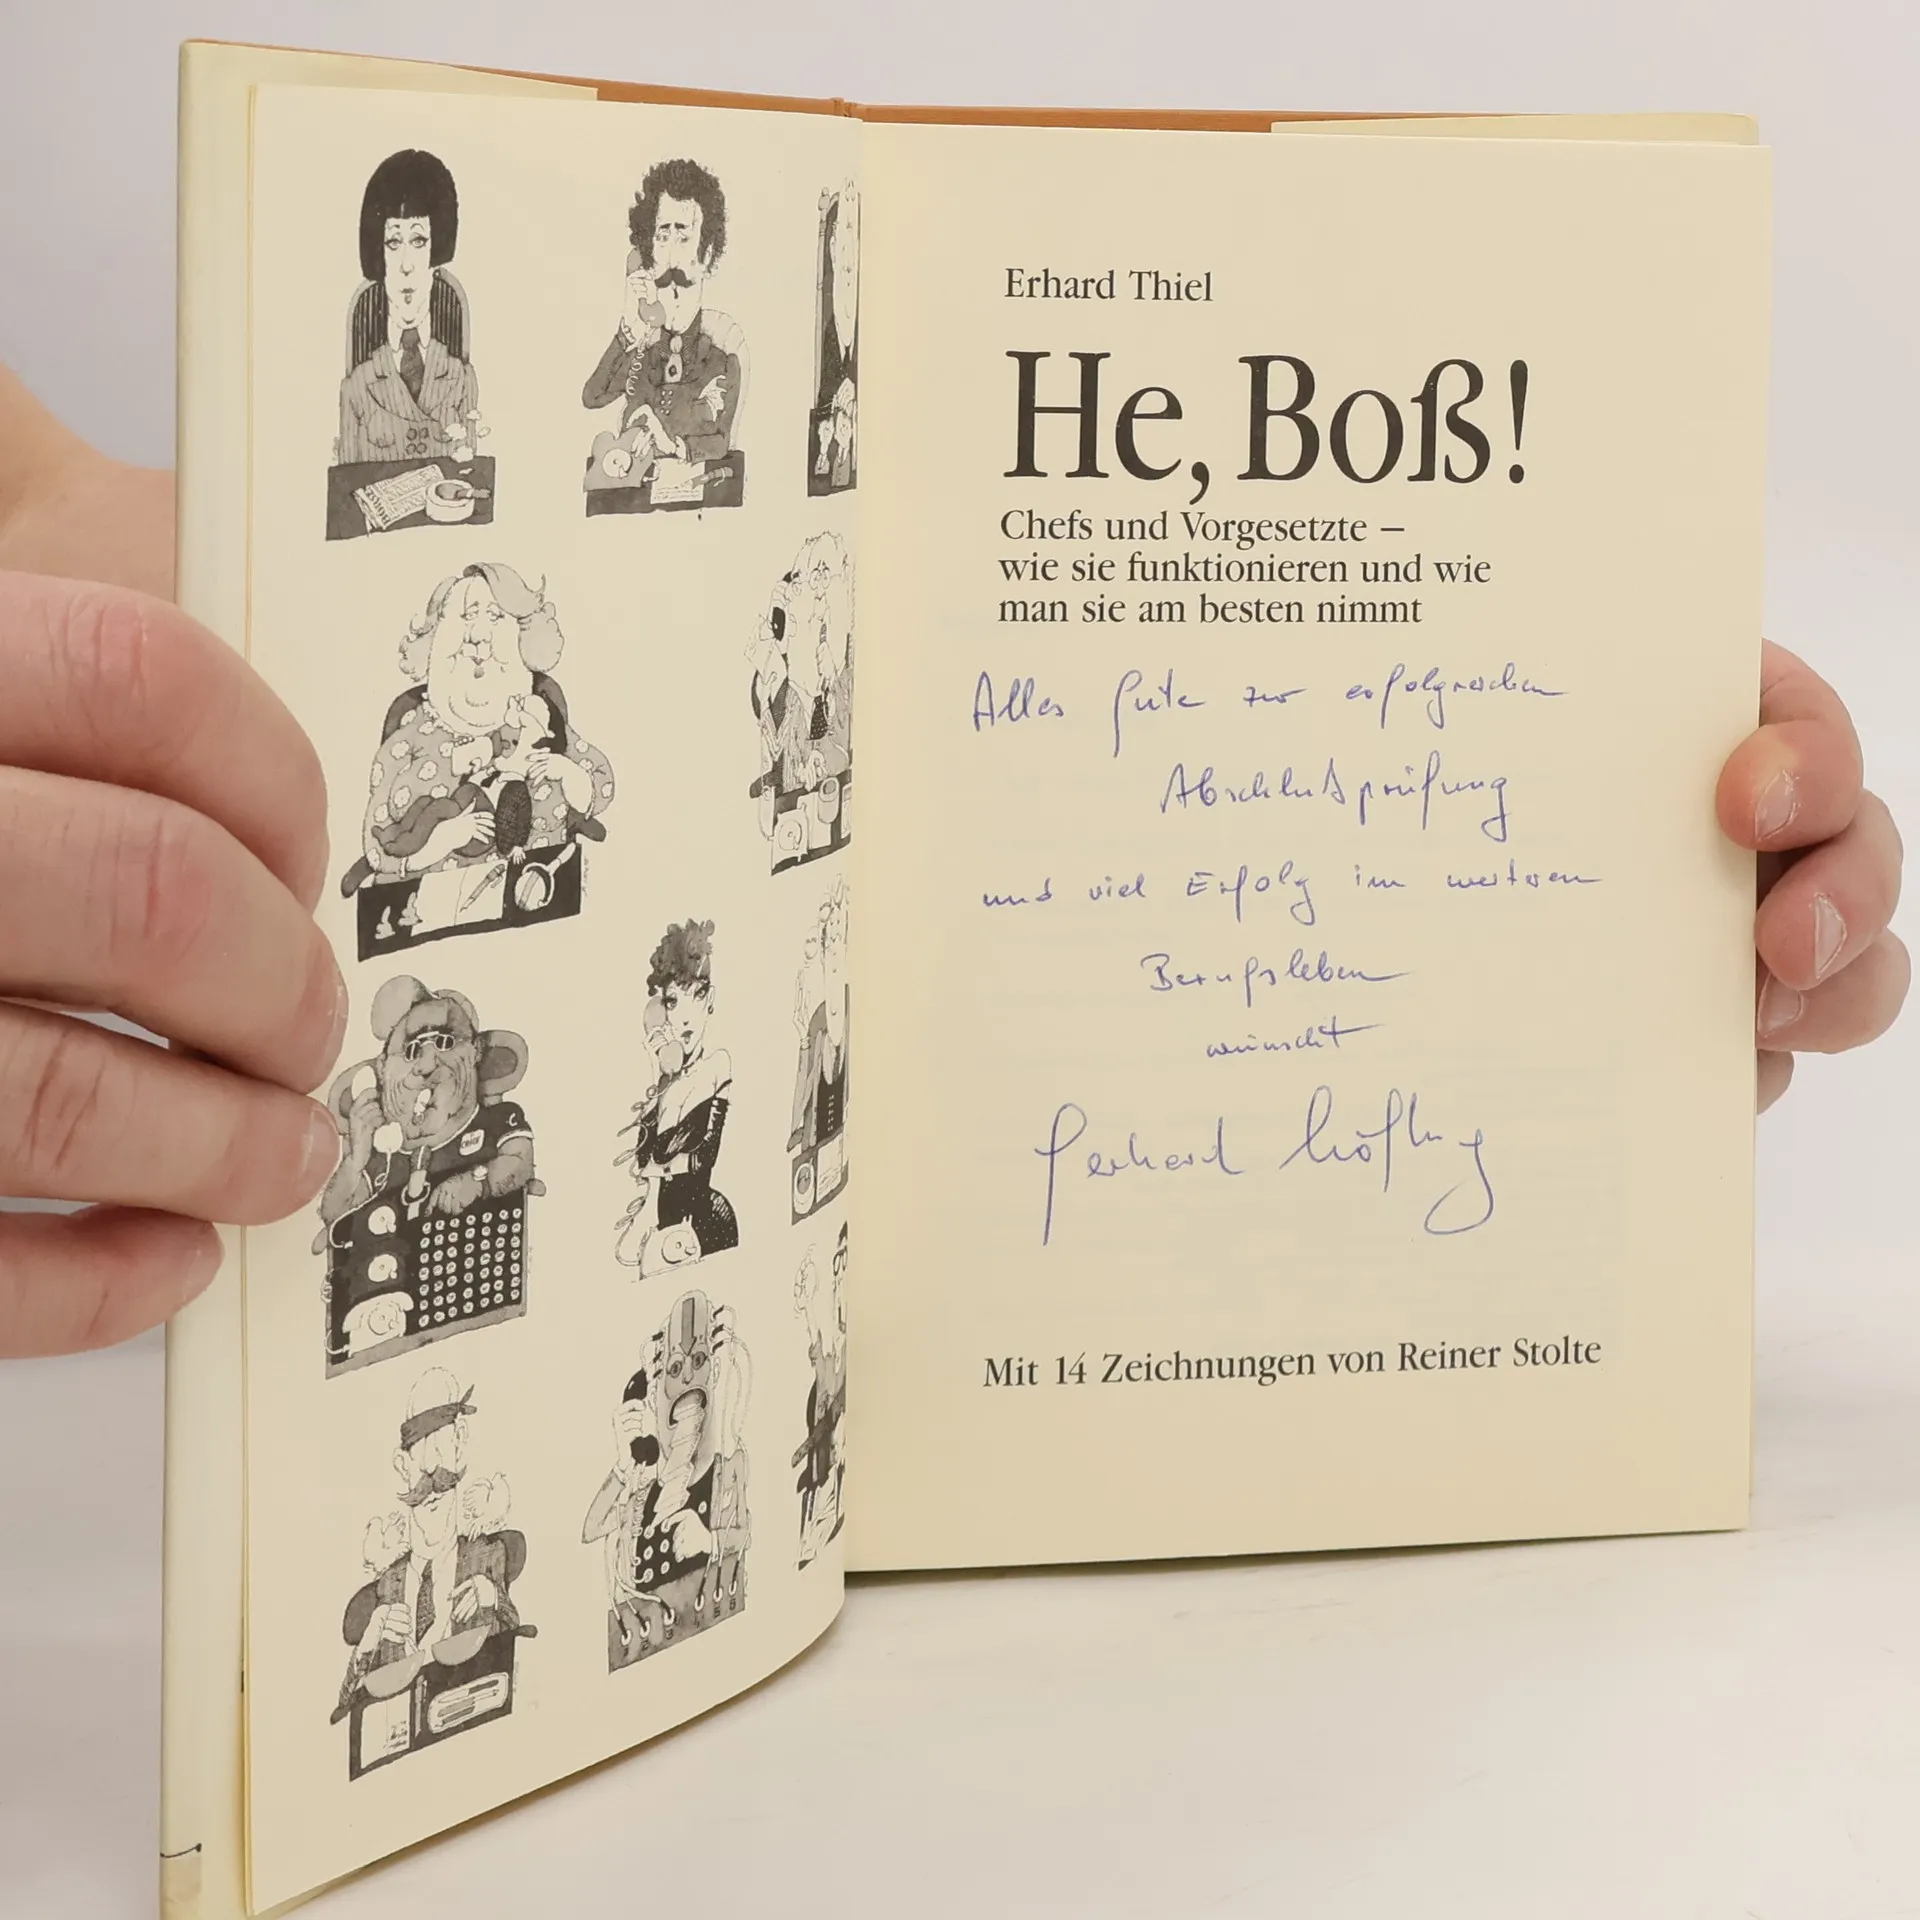 Erhard Thiel
He, Boß!
Chefs und Vorgesetzte –
wie sie funktionieren und wie
man sie am besten nimmt
Alles Gute zur erfolgreichen
Abschlußprüfung
und viel Erfolg im weiteren
Berufsleben
wünscht
Gerhard
Mit 14 Zeichnungen von Reiner Stolte